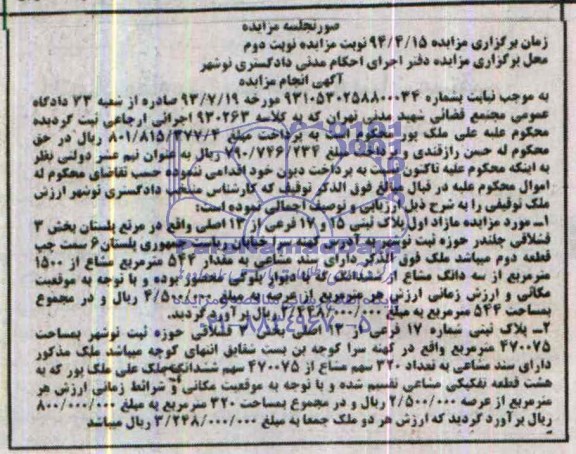 صورتجلسه مزایده
زمان برگزاری مزایده ۹۴/۴/۱۵ نوبت مزایده نوبت دوم
محل برگزاری مزایده دفتر اجرای احکام مدنی دادگستری نوشهر
آگهی انجام مزایده
به موجب نیابت بشماره ۹۳۱۰۵۳۰۲۵۸۸۰۰۰۳۴ مورخه ۹۳/۷/۱۹ صادره از شعبه ۷۳ دادگاه
عمومی مجتمع قضائی شهید مدنی تهران که به کلاسه ۹۳۰۲۶۳ اجرائی ارجاعی ثبت گردیده
محکوم علیه علی ملک پور محکوم است به پرداخت مبلغ ۸۰۱/۸۱۵/۳۷۷/۴ ریال در حق
محکوم له حسن رازقندی و پرداخت مبلغ ۹۰/۷۴۶/۲۳۴ ریال به عنوان نیم عشر دولتی نظر
به اینکه محکوم علیه تاکنون نسبت به پرداخت دیون خود اقدامی ننموده حسب تقاضای محکوم له
اموال محکوم علیه در قبال مبالغ فوق الذکر توقیف که کارشناس منتخب دادگستری نوشهر ارزش
ملک توقیفی را به شرح ذیل ارزیابی و توصیف اجمالی نموده است:
۱ـ مورد مزایده مازاد اول پلاک ثبتی ۱۵ و ۱۷ فرعی از ۱۳ اصلی واقع در مرتع پلستان بخش ۳
قشلاقی چلندر حوزه ثبت نوشهر به آدرس کهنه سرا خیابان ریاست جمهوری پلستان ۶ سمت چپ
قطعه دوم میباشد ملک فوق الذکر دارای سند مشاعی به مقدار ۵۴۴ مترمربع مشاع از ۱۵۰۰
مترمربع از سه دانگ مشاع از ششدانگ که با دیوار بلوکی محصور بوده و با توجه به موقعیت
مکانی و ارزش زمانی ارزش هر مترمربع از عرصه به مبلغ ۴/۵۰۰/۰۰۰ ریال و در مجموع
بمساحت ۵۴۴ مترمربع به مبلغ ۲/۴۴۸/۰۰۰/۰۰۰ ریال برآورد گردید.
۲ـ پلاک ثبتی شماره ۱۷ فرعی از ۱۳ اصلی بخش ۳ قشلاقی حوزه ثبت نوشهر بمساحت
۴۷۰۰۷۵ مترمربع واقع در کهنه سرا کوچه بن بست شقایق انتهای کوچه میباشد ملک مذکور
دارای سند مشاعی به تعداد ۳۲۰ سهم مشاع از ۴۷۰۰۷۵ سهم ششدانگ ملک علی ملک پور که به
هشت قطعه تفکیکی مشاعی تقسیم شده و با توجه به موقعیت مکانی و شرائط زمانی ارزش هر
مترمربع از عرصه ۲/۵۰۰/۰۰۰ ریال و در مجموع بمساحت ۳۲۰ مترمربع به مبلغ ۸۰۰/۰۰۰/۰۰۰
ریال برآورد گردید که ارزش هر دو ملک جمعا به مبلغ ۳/۲۴۸/۰۰۰/۰۰۰ ریال میباشد